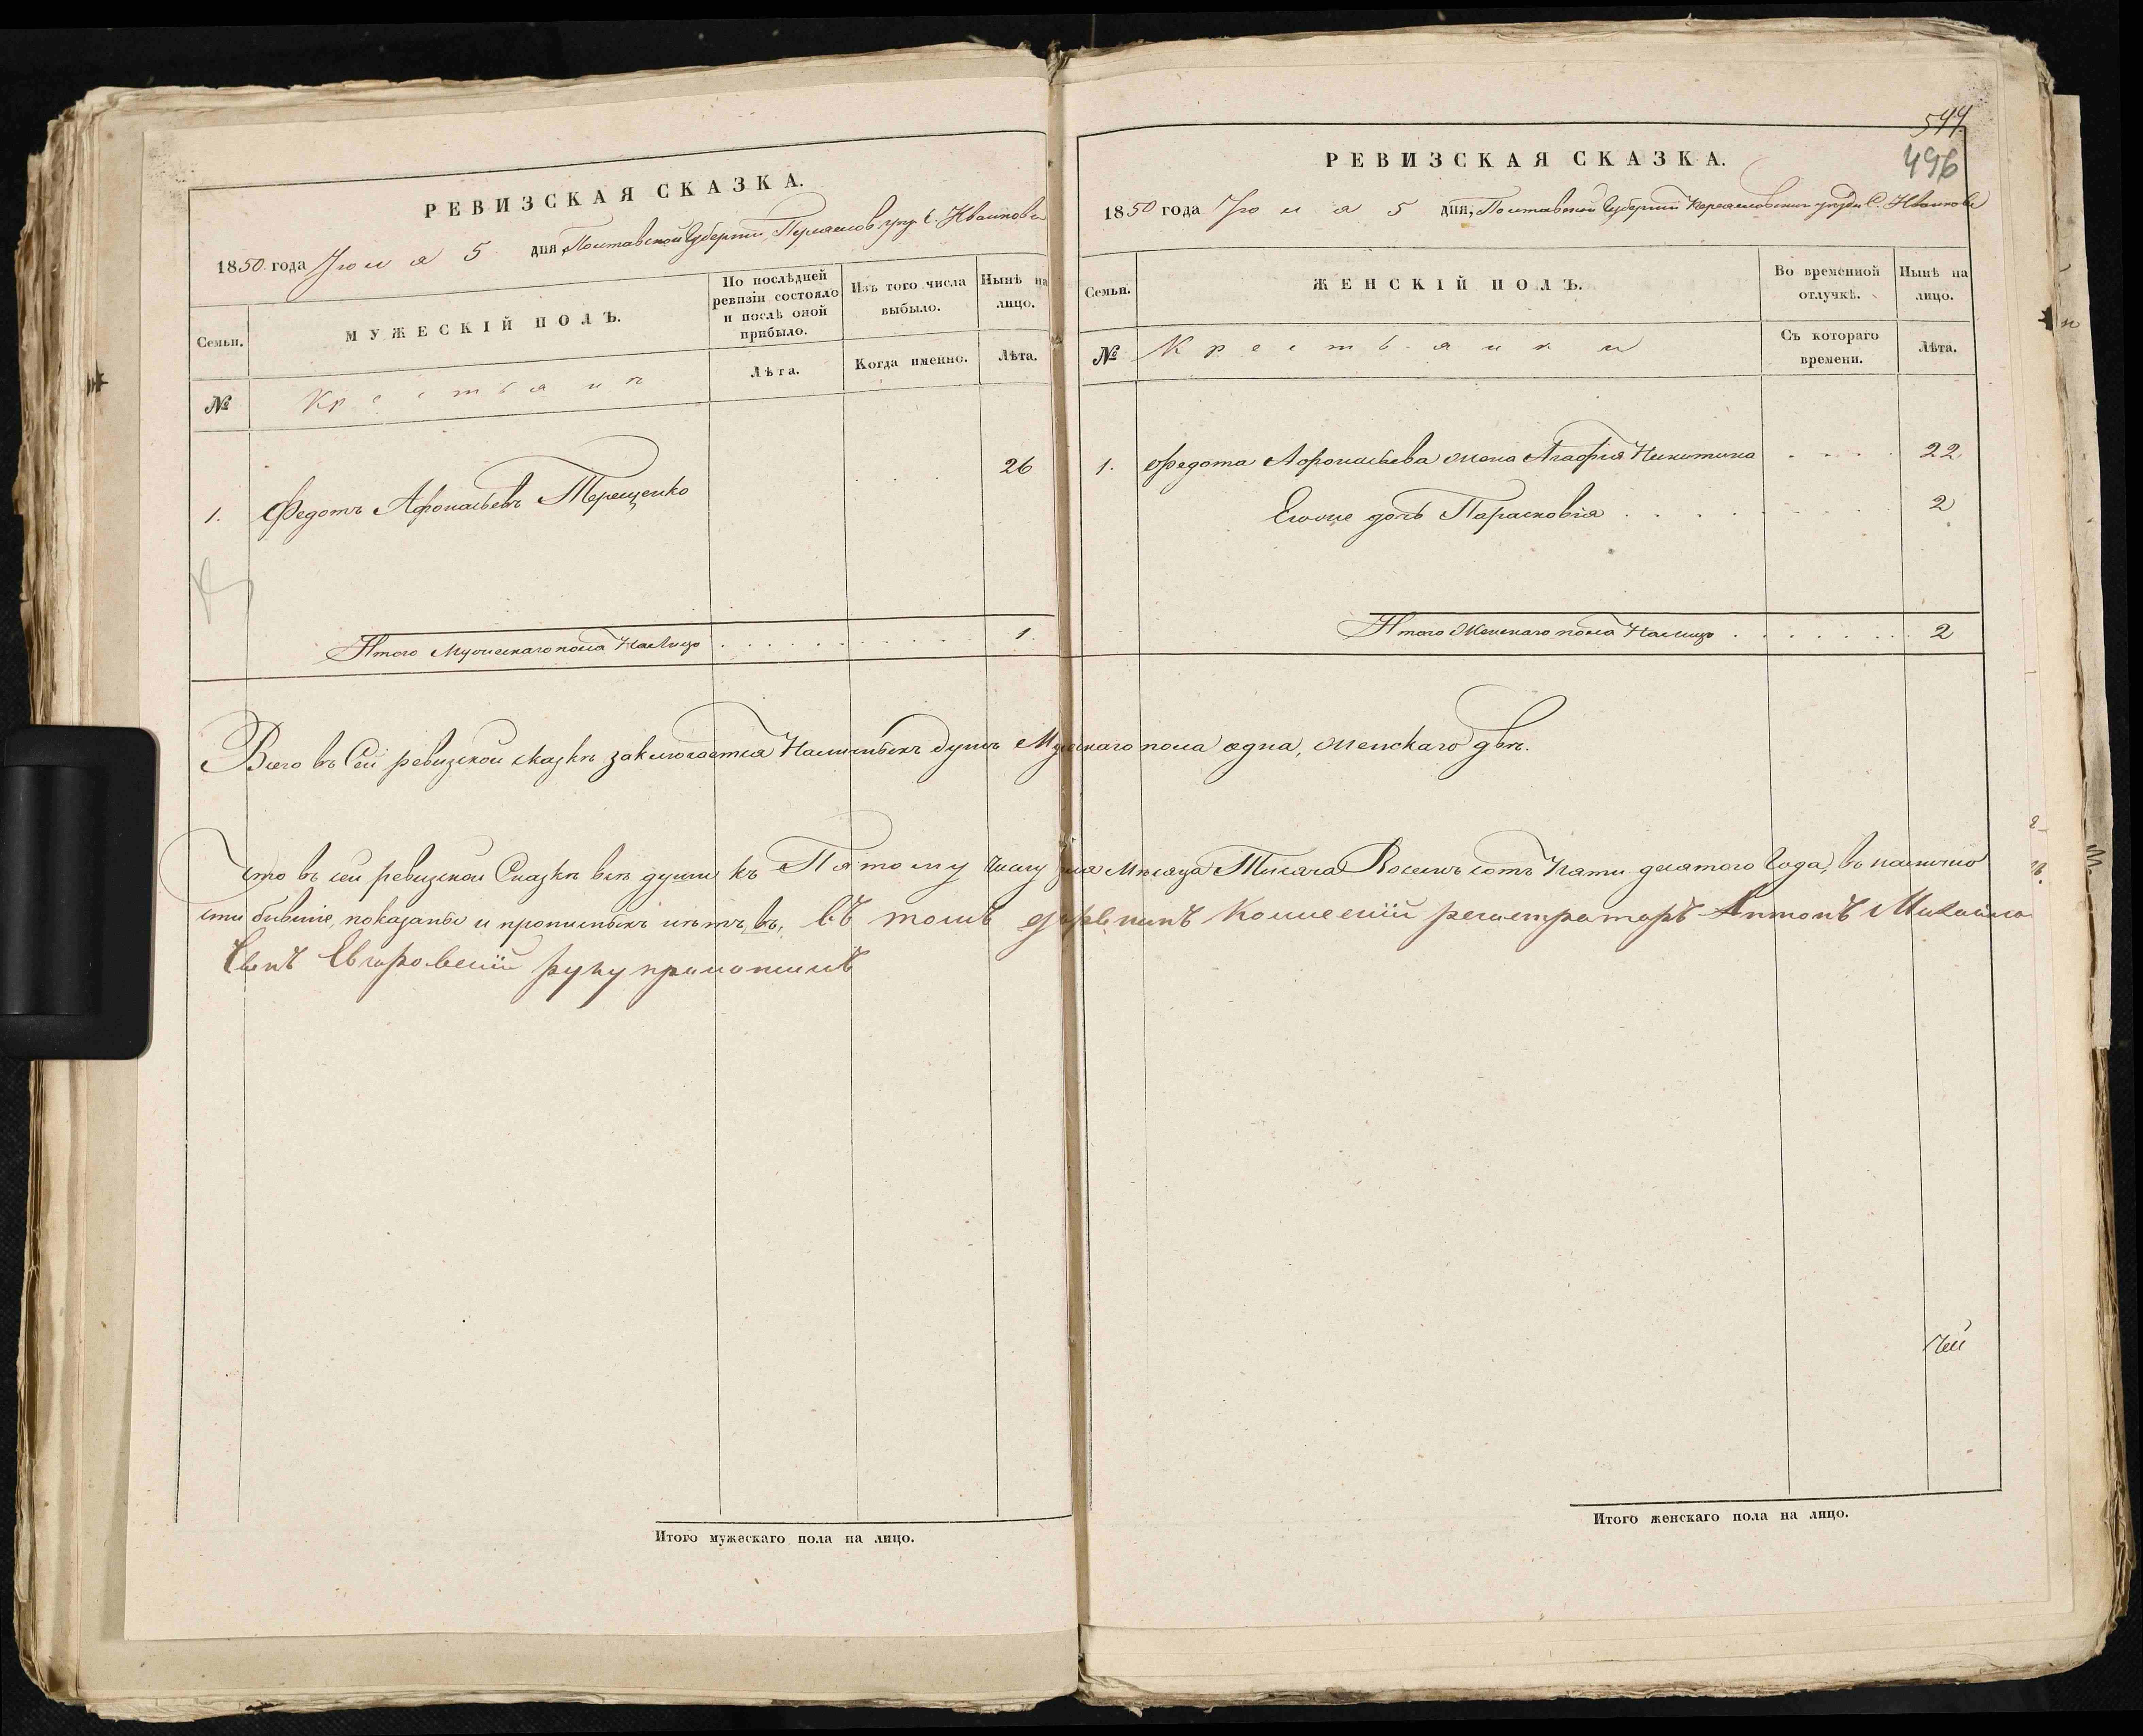 РЕВИЗСКАЯ СКАЗКА.
1850 года Июля 5 дня, Полтавской Губернии, Переяслов. уезд. С. Иванкова
Семьи.
МУЖЕСКІЙ ПОЛЪ.
По послѣдней ревизіи состояло и послѣ оной прибыло.
Изъ того числа выбыло.
Нынѣ на лицо.
№
Крестьянъ
Лѣта.
Когда именно.
Лѣта.
1. Федотъ Афонасьевъ Терещенко 26
Итого Мужескаго пола На Лицо 1.
544
496
РЕВИЗСКАЯ СКАЗКА.
1850 года Июля 5 дня, Полтавской Губернии Переясловскаго уезда С. Иванкова
Семьи.
ЖЕНСКІЙ ПОЛЪ.
Во временной отлучкѣ.
Нынѣ на лицо.
№
Крестьянки
Съ котораго времени.
Лѣта.
1. Федота Афонасьева жена Агафія Никитина 22
Егоже дочь Парасковія 2
Итого Женскаго пола На лицо 2
Всего въ Сей ревизской сказкѣ заключается Наличныхъ душъ Мужескаго пола одна, женскаго двѣ.
Что въ сей ревизской Сказкѣ всѣ души къ Пятому числу Июля Мѣсяца Тысяча Восемь сотъ Пяти десятого Года, въ налично
сти бывшіе, показаны и прописныхъ нѣтъ, въ томъ Колленскій регистраторъ Антонъ Михайло
Сынъ руку приложилъ
Итого мужескаго пола на лицо.
Итого женскаго пола на лицо.